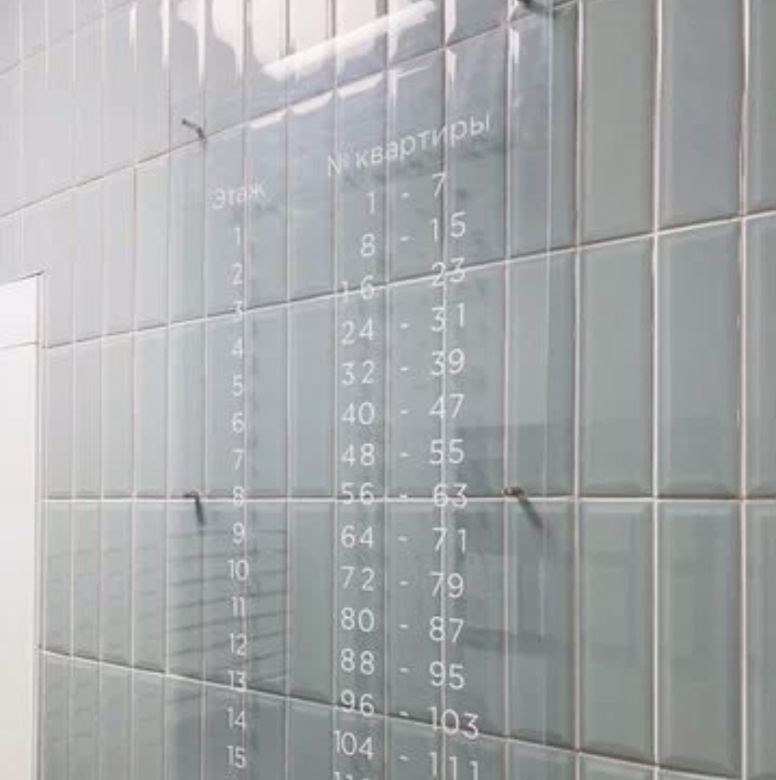 Этаж № квартиры
1 1 - 7
2 8 - 15
3 16 - 23
4 24 - 31
5 32 - 39
6 40 - 47
7 48 - 55
8 56 - 63
9 64 - 71
10 72 - 79
11 80 - 87
12 88 - 95
13 96 - 103
14 104 - 111
15